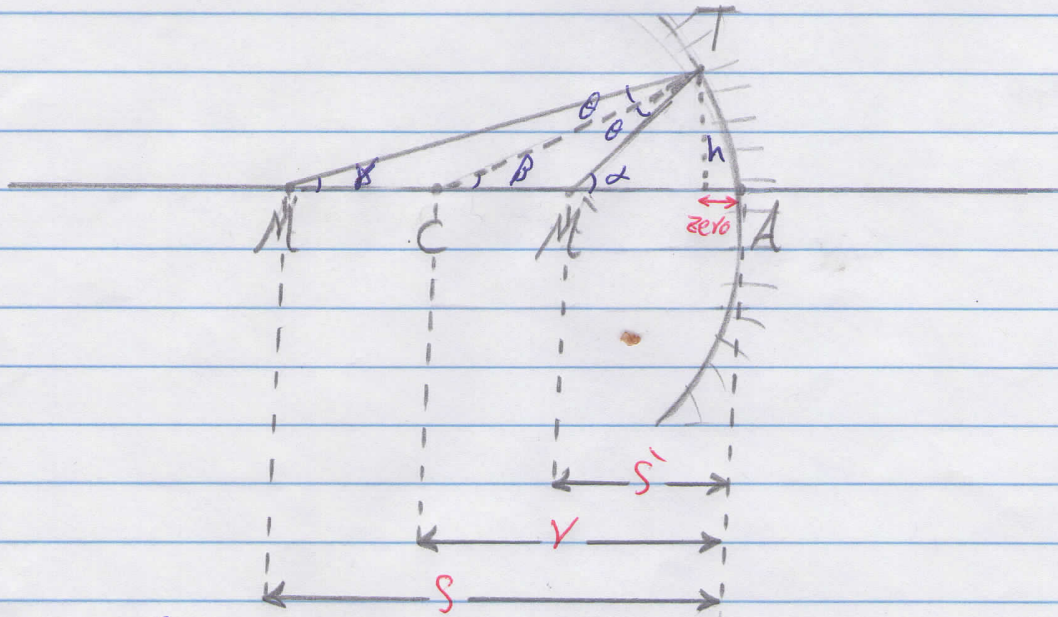 T
θ
θ h
γ β α
zero
M C M' A
S'
r
S